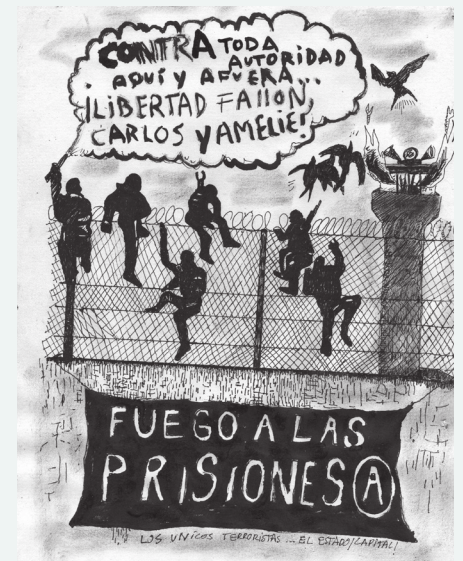 CONTRA TODA
AUTORIDAD
AQUÍ Y AFUERA...
¡LIBERTAD FALLON,
CARLOS Y AMELIE!
FUEGO A LAS
PRISIONES Ⓐ
LOS UNICOS TERRORISTAS ... EL ESTADO/CAPITAL!